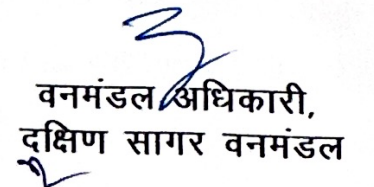 वनमंडल अधिकारी,
दक्षिण सागर वनमंडल